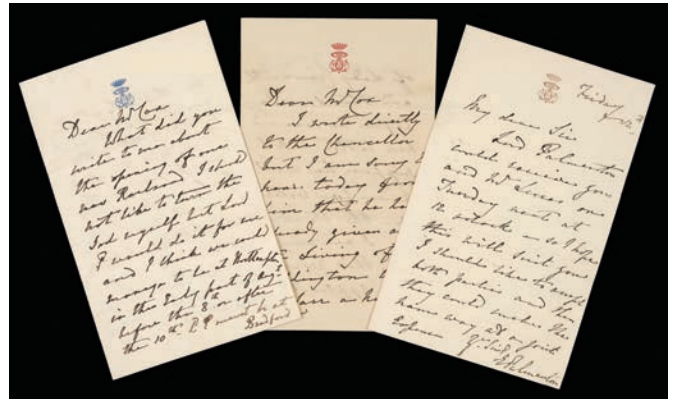 Dear Mr Cox
What did you
write to me about
the opening of one
new Railroad I shd
not like to turn the
Sod myself but Lord
P would do it for me
and I think we could
manage to be at
in the Early part of Augt
before the 8th or after
the 10th P.P must be at
Bedford
Dear Mr Cox
I wrote directly
to the Chancellor
but I am sorry to
hear today from
him that he ha
ready given a
Living of
dington
Friday
My dear Sir
Lord Palmerston
could receive you
and Mr on
Tuesday next at
12 oclock so I hope
this will suit you
I should like to
both parties and then
they could make the
same way at a joint
Expense
EPalmerston